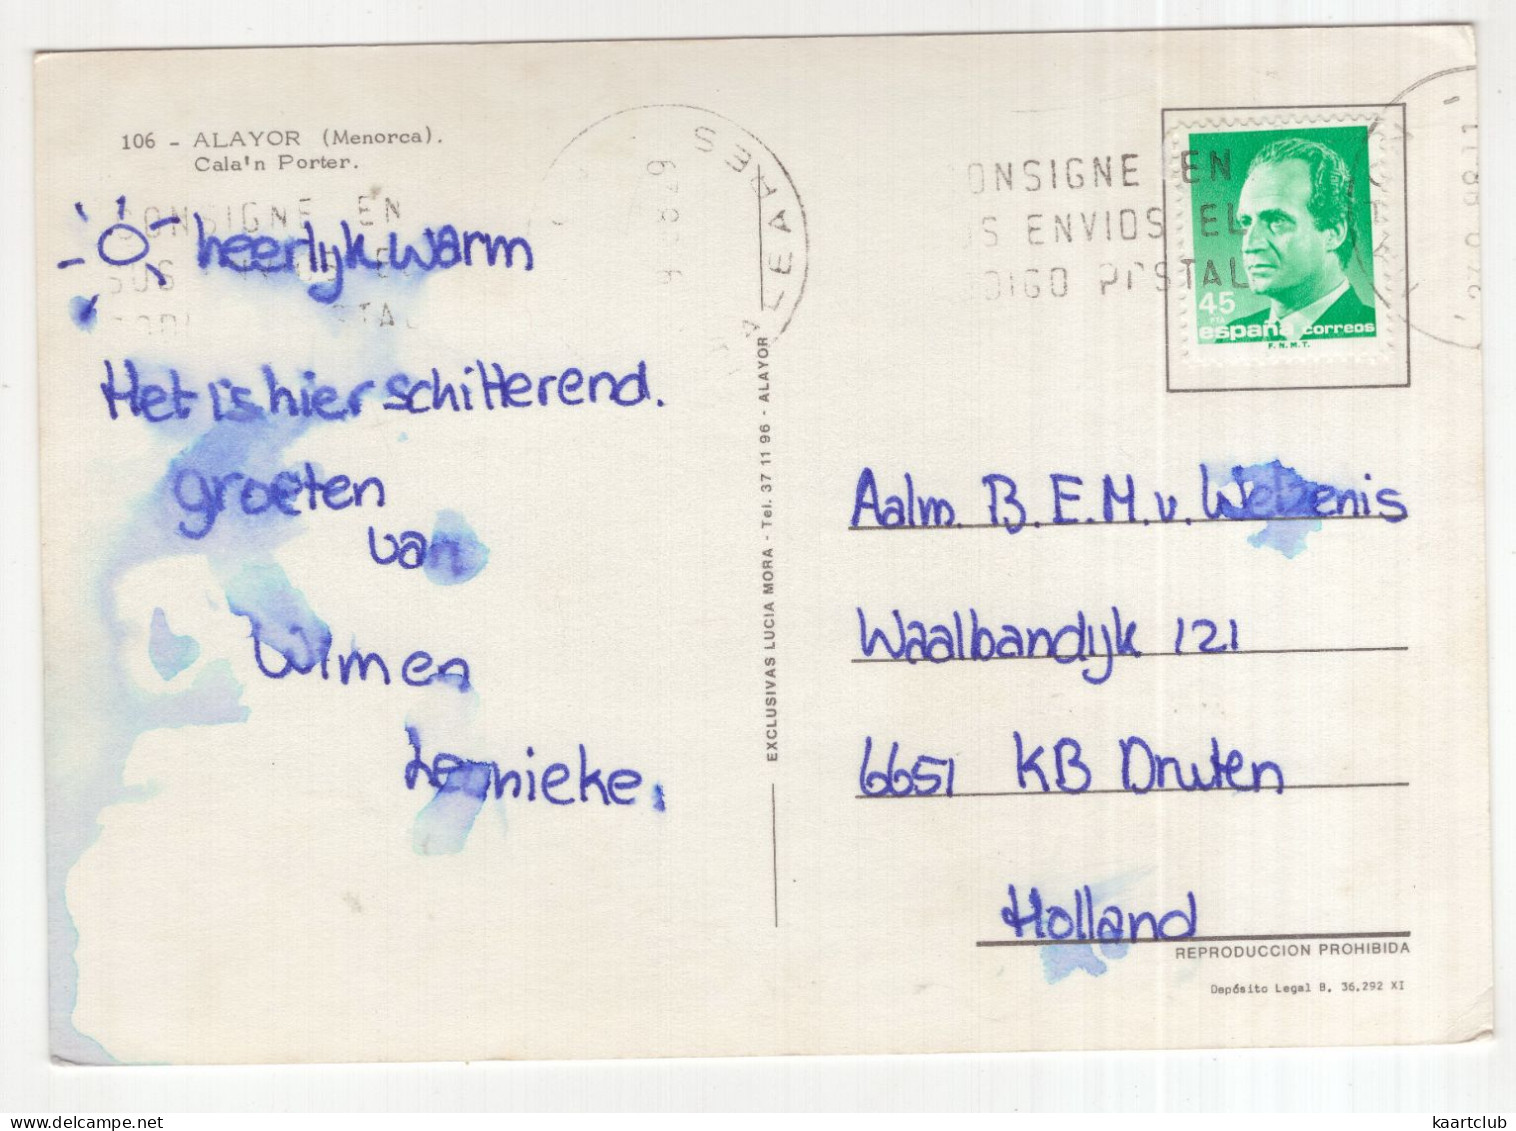 106 - ALAYOR (Menorca).
Cala'n Porter.
CONSIGNE EN
SUS
heerlijk warm
Het is hier schitterend.
groeten
van
Wim en
Lennieke.
EXCLUSIVAS LUCIA MORA - Tel. 37 11 96 - ALAYOR
ONSIGNE EN
US ENVIOS EL
DIGO POSTAL
45
PTA
españa correos
F.N.M.T.
Aalm. B.E.M. v. Welzenis
Waalbandijk 121
6651 KB Druten
Holland
REPRODUCCION PROHIBIDA
Depósito Legal B. 36.292 XI
kaartclub